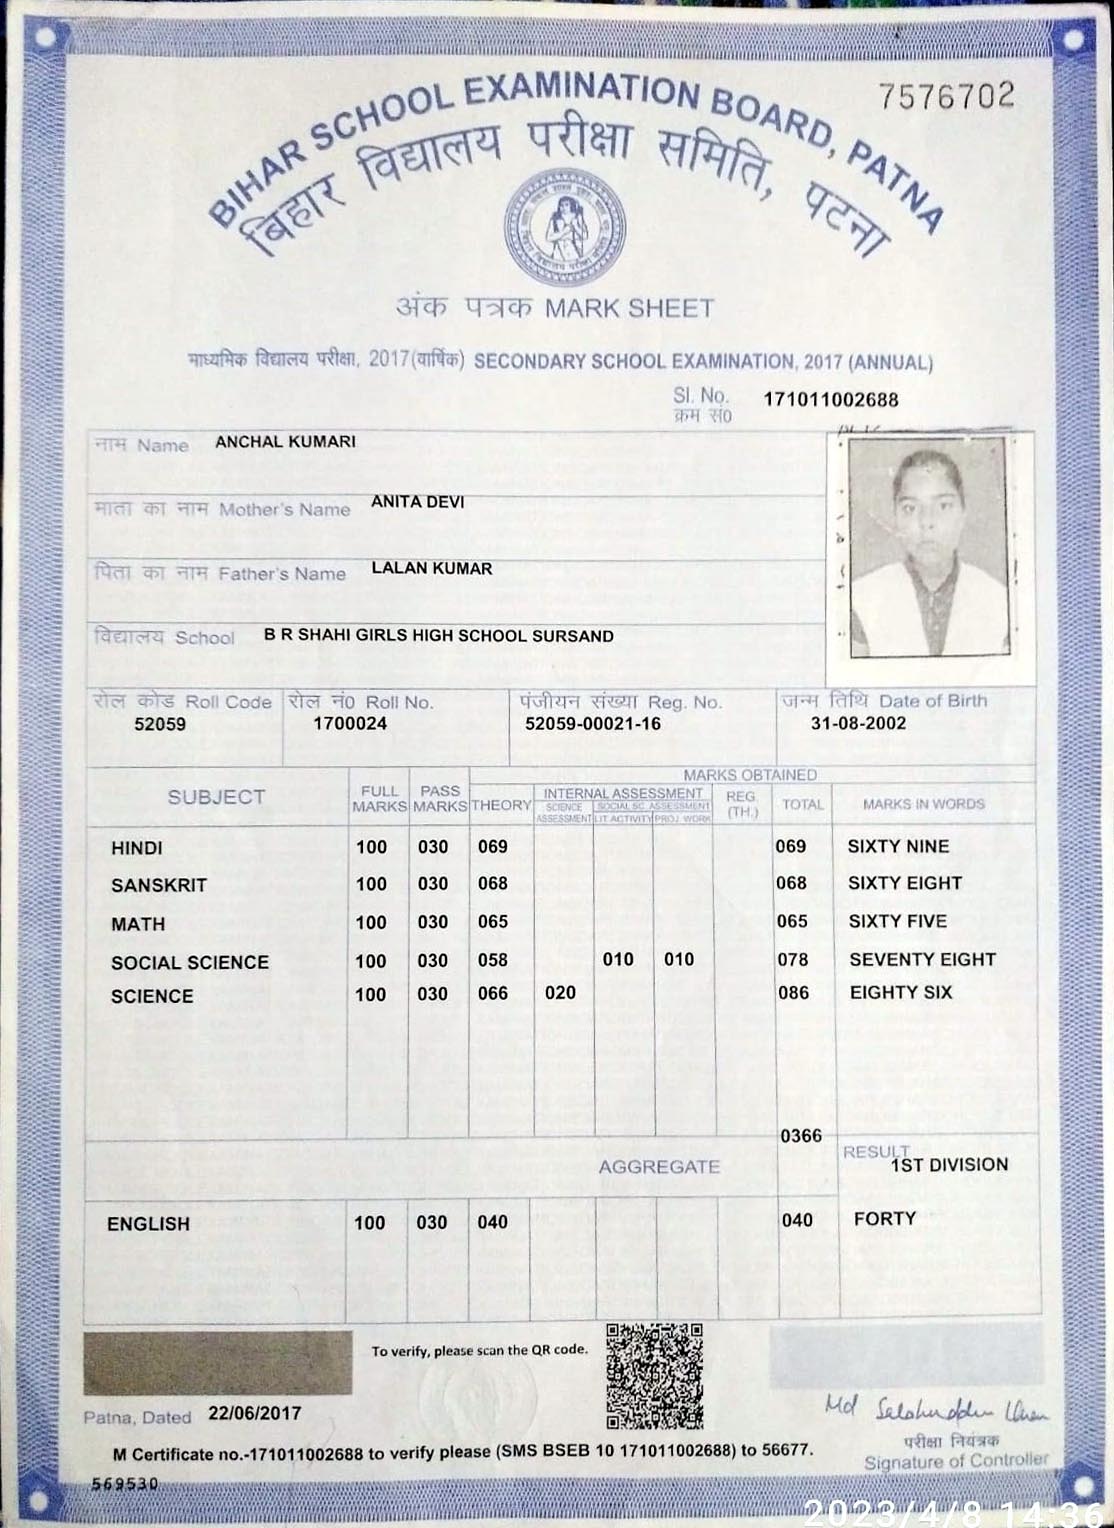 7576702
BIHAR SCHOOL EXAMINATION BOARD, PATNA
बिहार विद्यालय परीक्षा समिति, पटना
अंक पत्रक MARK SHEET
माध्यमिक विद्यालय परीक्षा, 2017(वार्षिक) SECONDARY SCHOOL EXAMINATION, 2017 (ANNUAL)
Sl. No. 171011002688
क्रम सं०
नाम Name ANCHAL KUMARI
माता का नाम Mother's Name ANITA DEVI
पिता का नाम Father's Name LALAN KUMAR
विद्यालय School B R SHAHI GIRLS HIGH SCHOOL SURSAND
रोल कोड Roll Code रोल नं० Roll No. पंजीयन संख्या Reg. No. जन्म तिथि Date of Birth
52059 1700024 52059-00021-16 31-08-2002
MARKS OBTAINED
SUBJECT FULL MARKS PASS MARKS THEORY INTERNAL ASSESSMENT REG. (TH.) TOTAL MARKS IN WORDS
SCIENCE ASSESSMENT SOCIAL SC. ASSESSMENT
LIT ACTIVITY PROJ. WORK
HINDI 100 030 069 069 SIXTY NINE
SANSKRIT 100 030 068 068 SIXTY EIGHT
MATH 100 030 065 065 SIXTY FIVE
SOCIAL SCIENCE 100 030 058 010 010 078 SEVENTY EIGHT
SCIENCE 100 030 066 020 086 EIGHTY SIX
0366
AGGREGATE RESULT 1ST DIVISION
ENGLISH 100 030 040 040 FORTY
To verify, please scan the QR code.
Patna, Dated 22/06/2017
Md Salahuddin Khan
परीक्षा नियंत्रक
Signature of Controller
M Certificate no.-171011002688 to verify please (SMS BSEB 10 171011002688) to 56677.
569530
2023/4/8 14:36